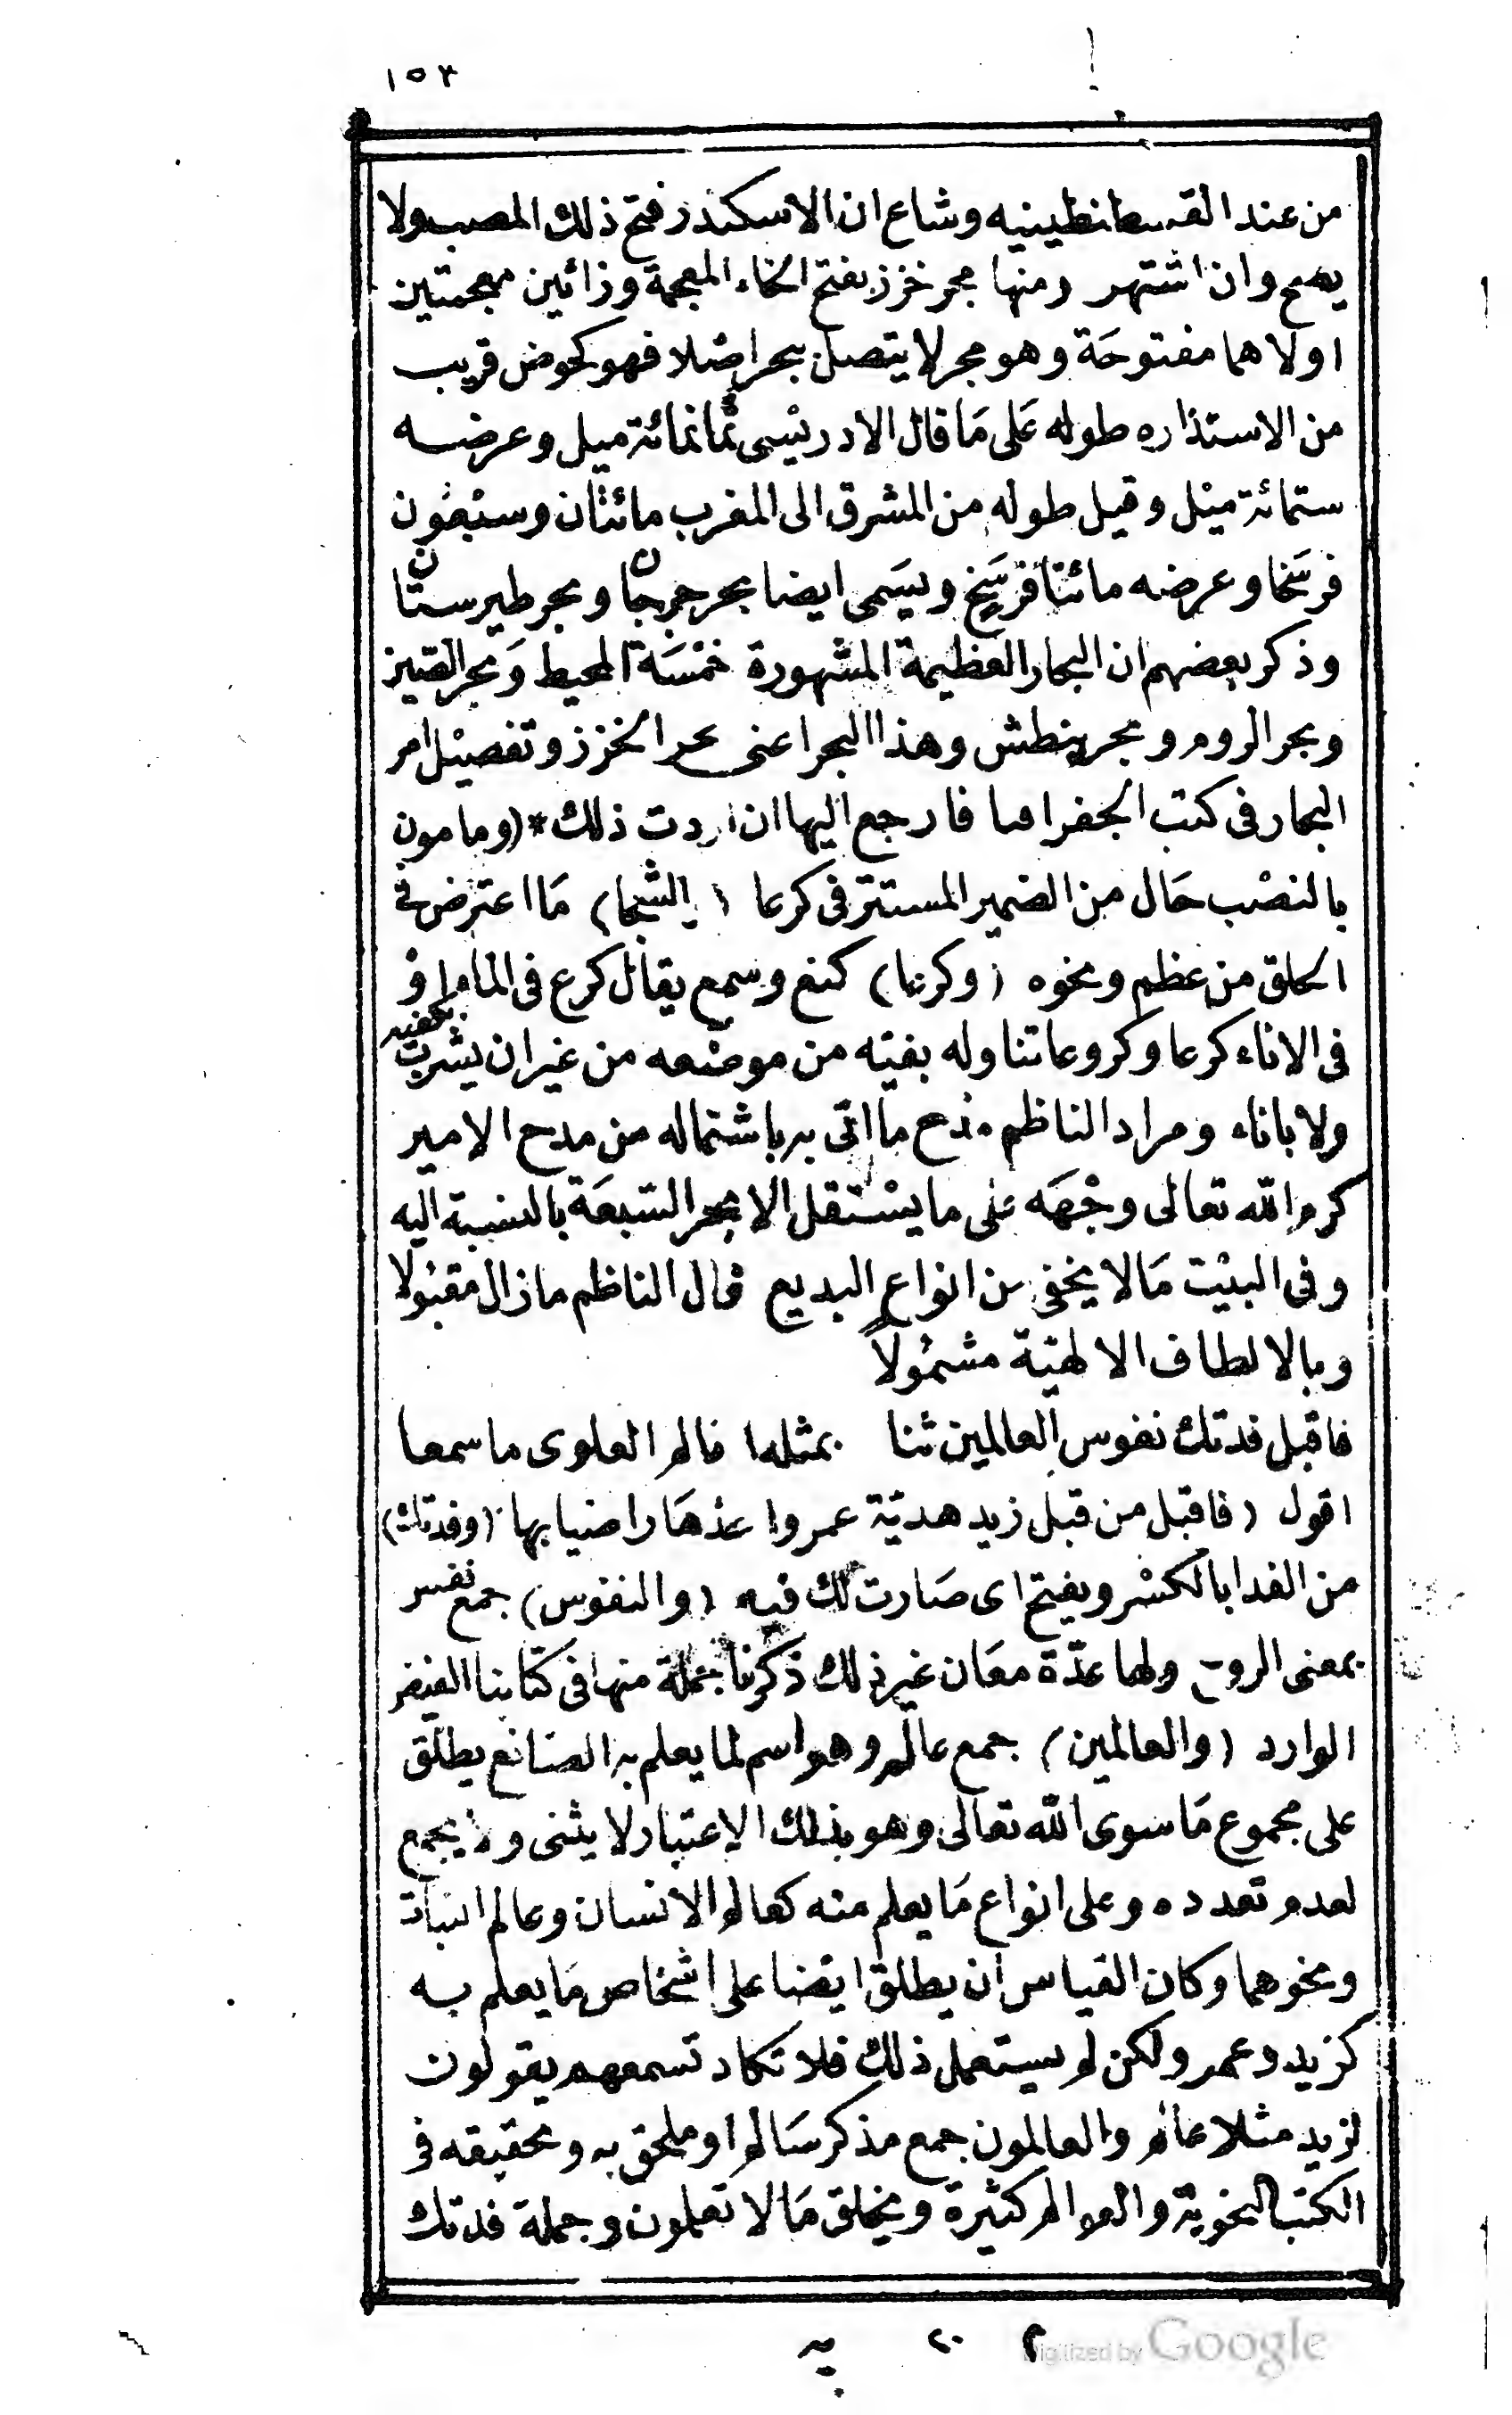 ١٥٣
من عند القسطنطينيه وشاع ان الاسكندر فتح ذلك المصب ولا
يصح وان اشتهر ومنها بحر خزز بفتح الخاء المعجمة وزائين معجمتين
اولاهما مفتوحة وهو بحر لا يتصل ببحر اصلا فهو كحوض قريب
من الاستداره طوله على ما قال الادريسى ثمانمائة ميل وعرضه
ستمائة ميل وقيل طوله من المشرق الى المغرب مائتان وسبعون
فرسخا وعرضه مائتا فرسخ ويسمى ايضا بحر جرجان وبحر طبرستان
وذكر بعضهم ان البحار العظيمة المشهورة خمسة المحيط وبحر الصين
وبحر الروم وبحر بنطش وهذا البحر اعنى بحر الخزز وتفصيل امر
البحار فى كتب الجغرافيا فارجع اليها ان اردت ذلك * (ومامون
بالنصب حال من الضمير المستتر فى كرعا (الشجا) ما اعترض فى
الحلق من عظم ونحوه (وكرعا) كنع وسمع يقال كرع فى الماء او
فى الاناء كرعا وكروعا تناوله بفيه من موضعه من غير ان يشرب بكفيه
ولا باناء ومراد الناظم مدح ما اتى به باشتماله من مدح الامير
كرم الله تعالى وجهه على ما يستقل الابحر السبعة بالنسبة اليه
وفى البيت ما لا يخفى من انواع البديع قال الناظم ما زال مقبولا
وبالالطاف الالهية مشمولا
فاقبل فدتك نفوس العالمين ثنا بمثله العالم العلوى ما سمعا
اقول (فاقبل من قبل زيد هدية عمرو اخذها راضيا بها (وفدتك)
من الفدا بالكسر ويفتح اى صارت لك فيه (والنفوس) جمع نفس
بمعنى الروح ولها عدة معان غير ذلك ذكرنا جملة منها فى كتابنا الفيض
الوارد (والعالمين) جمع عالم وهو اسم لما يعلم به الصانع يطلق
على مجموع ما سوى الله تعالى وهو بذلك الاعتبار لا يثنى ولا يجمع
لعدم تعدده وعلى انواع ما يعلم منه كعالم الانسان وعالم النبات
ونحوهما وكان القياس ان يطلق ايضا على اشخاص ما يعلم به
كزيد وعمرو لكن لم يستعمل ذلك فلا تكاد تسمعهم يقولون
لزيد مثلا عالم والعالمون جمع مذكر سالم او ملحق به وتحقيقه فى
الكتب النحوية والعوالم كثيرة ويخلق ما لا تعلمون وجملة فدتك
٢ ٢٠ يه
Digitized by Google